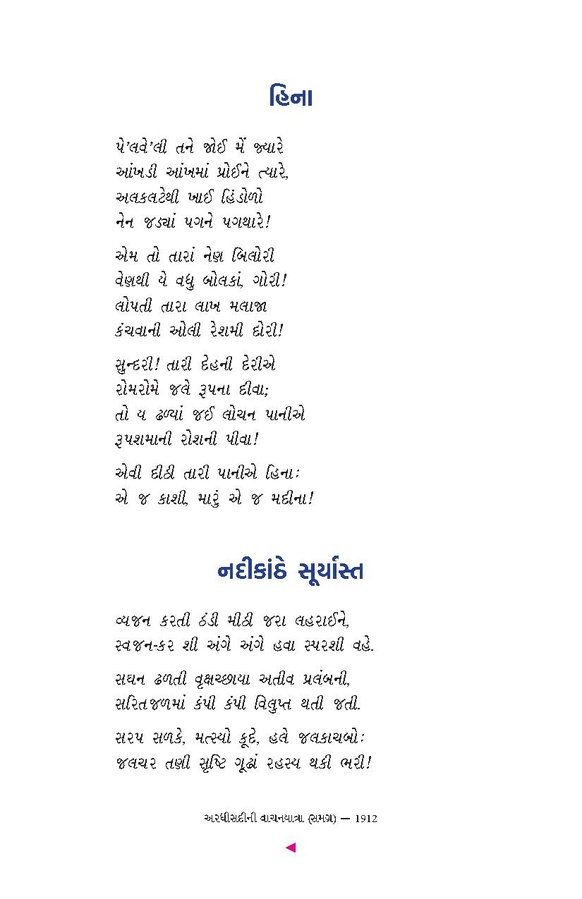 હિના
પે'લવે'લી તને જોઈ મેં જ્યારે
આંખડી આંખમાં પ્રોઈને ત્યારે,
અલકલટેથી ખાઈ હિંડોળો
નેન જડ્યાં પગને પગથારે!
એમ તો તારાં નેણ બિલોરી
વેણથી યે વધુ બોલકાં, ગોરી!
લોપતી તારા લાખ મલાજા
કંચવાની ઓલી રેશમી દોરી!
સુન્દરી! તારી દેહની દેરીએ
રોમરોમે જલે રૂપના દીવા;
તો ય ઢળ્યાં જઈ લોચન પાનીએ
રૂપશમાની રોશની પીવા!
એવી દીઠી તારી પાનીએ હિનાઃ
એ જ કાશી, મારું એ જ મદીના!
નદીકાંઠે સૂર્યાસ્ત
વ્યજન કરતી ઠંડી મીઠી જરા લહરાઈને,
સ્વજન-કર શી અંગે અંગે હવા સ્પરશી વહે.
સઘન ઢળતી વૃક્ષચ્છાયા અતીવ પ્રલંબની,
સરિતજળમાં કંપી કંપી વિલુપ્ત થતી જતી.
સરપ સળકે, મત્સ્યો કૂદે, હલે જલકાચબોઃ
જલચર તણી સૃષ્ટિ ગૂઢાં રહસ્ય થકી ભરી!
અરધીસદીની વાચનયાત્રા (સમગ્ર) — 1912